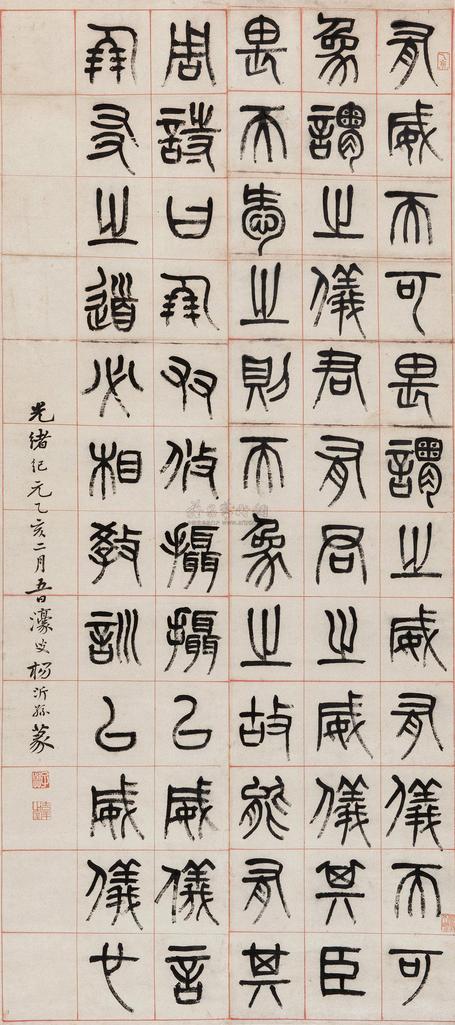 有威而可畏謂之威有儀而可
象謂之儀君有君之威儀其臣
畏而愛之則而象之故能有其
周詩曰朋友攸攝攝以威儀言
朋友之道必相教訓以威儀也
光緒紀元乙亥二月五日濠叟楊沂孫篆